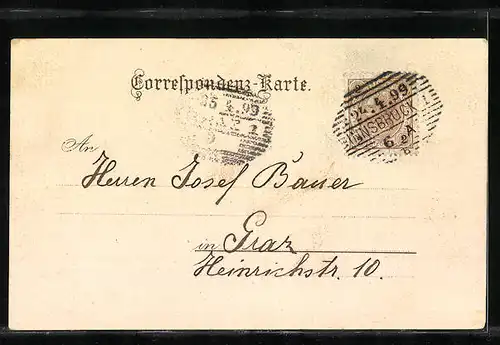 Correspondenz-Karte.
24.4.99
INNSBRUCK 1
6 2A
25 4 99
1
An
Herren Josef Bauer
in Graz
Heinrichstr. 10.